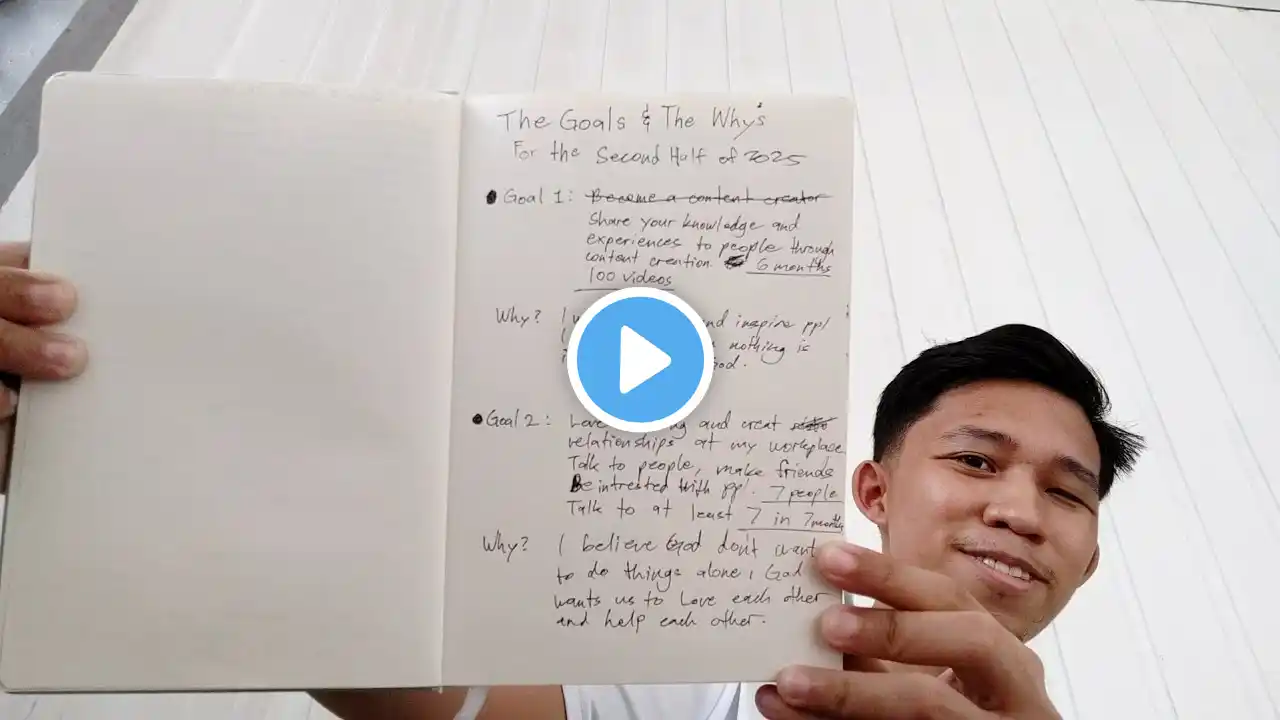 The Goals & The Why's
For the Second Half of 2025
Goal 1: Become a content creator
Share your knowledge and
experiences to people through
content creation. 6 months
100 videos
Why? I and inspire ppl
nothing is
God.
Goal 2: Love and creat
relationships at my workplace
Talk to people, make friends
Be intrested with ppl. 7 people
Talk to at least 7 in 7 months
Why? I believe God don't want
to do things alone, God
wants us to Love each other
and help each other.